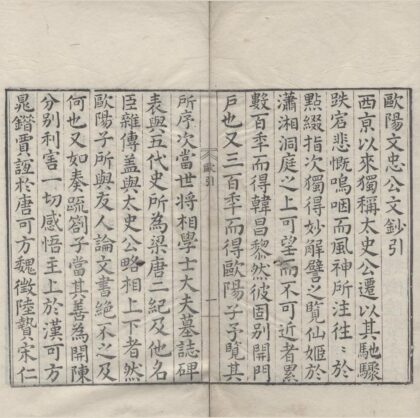 歐陽文忠公文鈔引
西京以來獨稱太史公遷以其馳驟
跌宕悲慨嗚咽而風神所注徃〻於
點綴指次獨得妙解譬之覽仙姬於
瀟湘洞庭之上可望而不可近者累
數百秊而得韓昌黎然彼固別開門
戶也又三百秊而得歐陽子予覽其
歐引
一
所序次當世將相學士大夫墓誌碑
表與五代史所為梁唐二紀及他名
臣雜傳蓋與太史公略相上下者然
歐陽子所與友人論文書絕不之及
何也又如奏疏劄子當其善為開陳
分別利害一切感悟主上於漢可方
晁錯賈誼於唐可方魏徵陸贄宋仁